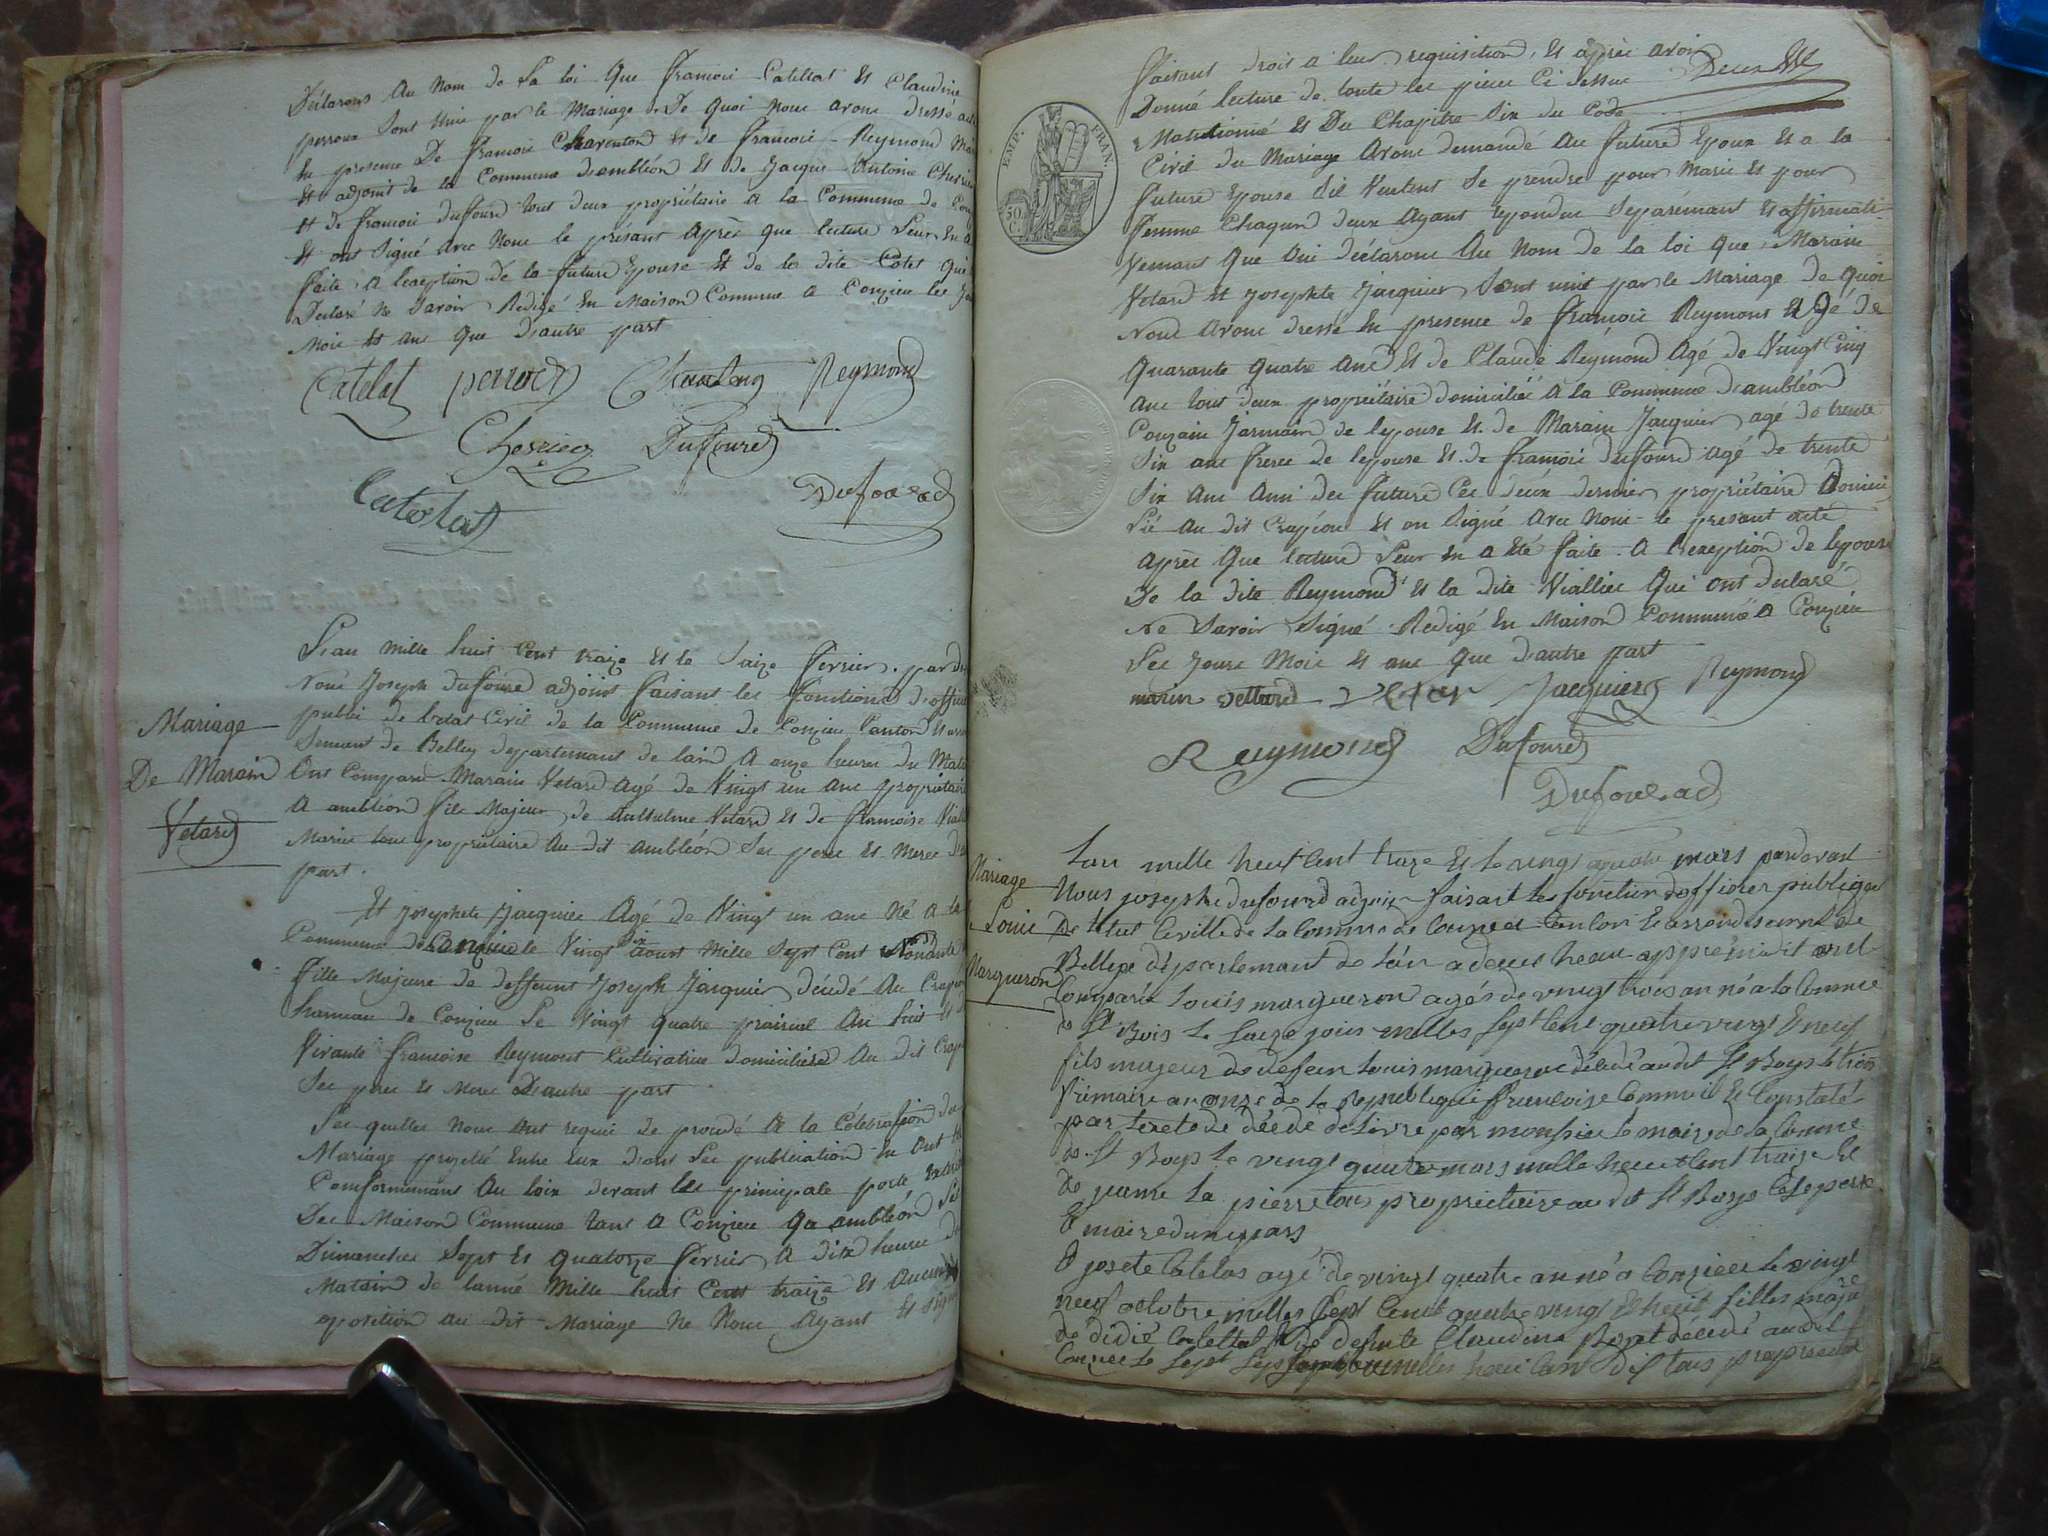 Déclarons au nom de la loi que françois Catellat et Claudine
perroux sont unie par le Mariage. De quoi nous avons dressé acte
En presence De françois Charveton et de françois Reymond
et adjoint de la Commune dambléon et de Jacque Antoine
et de françois duffourd tout deux propriétaire a la Commune de
et ont signé avec Nous le présant après que lecture leur en a
faite, a lexeption de la future Epouse et de la dite Cotet qui
Declaré ne Savoir Redigé En Maison Commune a Conzieu les jour
Mois et ans que dautre part
Catelat perroux Reymond
Duffourd
Catelat
Dufourd
Lan mille huit Cent traize et le Saize fevrier. par devant
Nous Joseph duffourd adjoint faisant les fonctions dofficier
publi de letat Civil de la Commune de Conzieu Canton et
Semant de Belley departemant de lain a onze heures du Matin
Mariage
De Marain
Vetard
Ont Comparu Marain Vetard agé de Vingt un ans propriétaire
a ambléon fils Majeur de Vetard et de françoise
Marie tous propriétaire au dit ambléon Ses pere et Mere
part.
Et Josephete Jacquier Agé de Vingt un ans Né a la
Commune de Conzieu le Vingt aoust Mille Sept Cent Nonante
fille Majeure de deffeunt Joseph Jacquier décédé Au
hameau de Conzieu le Vingt quatre prairial an huit et
Vivante françoise Reymont Cultivatrice domiciliée Au dit
Ses pere et Mere Dautre part
Les quelles nous ont requi de procedé a la Célébration du
Mariage projetté Entre eux dont les publication en ont
Comformemant au loix devant les principale porte
Des Maison Commune tant a Conzieu qua ambléon les
Dimanches Sept et quatorze fevrier a dix heures du
Matain de lanné Mille huit Cent traize et aucune
oposition au dit Mariage ne Nous Ayant
faisant droit a leur requisition, et après avoir
Donné lecture de toute les piece Ci dessus
Mantionné et Du Chapitre Six du Code
EMP. FRAN.
50 C.
Civil du Mariage Avons demandé au futured Epoux et a la
future Epouse Sil Veulent Se prendre pour Marie et pour
femme Chaqun deux Ayant repondue Separémant et affirmati
Vemant que Oui déclarons Au Nom de la loi que Marain
Vetard et Josephete Jacquier Sont unit par le Mariage de quoi
Nous avons dressé En presence de françois Reymont age de
quarante quatre ans et de Claude Reymond Agé de Vingt Cinq
ans tout deux propriétaire domiciliée a la Commune dambléon
Couzain Jarmain de lepouse et de Marain Jacquier agé de trente
Six ans frere de lepouse et de françois duffourd agé de trente
Six ans Ami des future Ces deux dernier propriétaire Domici
lié au dit et on Signé avec Nous le presant acte
après que lecture leur en a été faite. a lexeption de lepouse
De la dite Reymond et la dite Viallier qui ont declaré
Ne Savoir Signé. Redigé En Maison Commune a Conzieu
Les Jours Mois et ans que dautre part
marin vettard Jacquier Reymond
Reymond Dufourd
Dufourd
Mariage
Louis
Margueron
Lan mille heuit Cent traze Et le vingt quatre mars pardevant
Nous joseph dufourd adjoin faisant les fonction dofficier publique
De letat Civille de la Comune de Conzieu Canton et arrondisement de
Belleye département de lain a deux heure appremidit ont
Comparée Louis margueron agés de vingt trois an né a la Comune
de St Bois le Saize join milles Sept Cent quatre vingt neuf
fils majeur de defein Louis margueron décédé audit St Boys le trois
frimaire an onze de la Republique francoise Comme il Et Constaté
par lexete de décéde delivre par monsieur le maire de la Comune
de St Boys le vingt quatre mars mille heuit Cent traize Et
de jeanne la pierre tous propriettaire au dit St Boys Cese pere
Et maire dune pars
Et josete Catelas agé de vingt quatre an né a Conzieu le vingt
neuf octobre milles Sept Cent quatre vingt Et heuit filles majure
de didié Catellat Et de defunte Claudine décédé audit
Conzieu le Sept milles heuit Cent dis tous